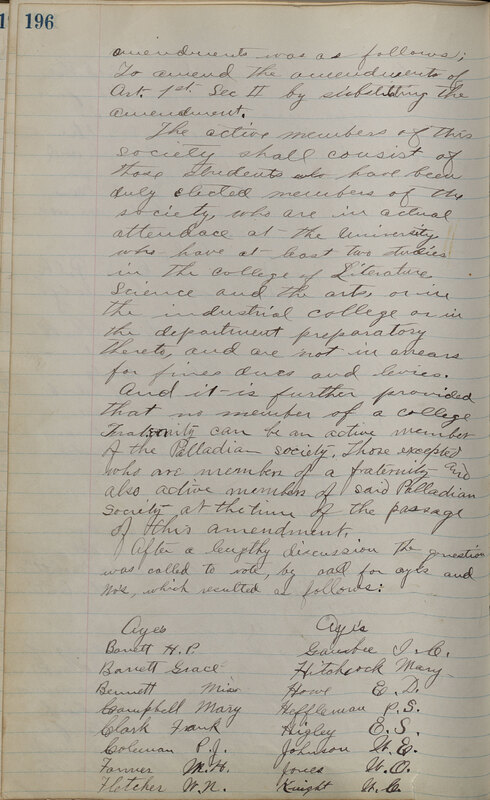 196
amendments was as follows;
To amend the amendments of
Art. 1st. Sec II by sibstituting the
amendment.
The active members of this
society shall consist of
those students who have been
duly elected members of the
society, who are in actual
attendace at the University,
who have at least two studies
in the college of Literature,
Science and the arts, or in
the industrial college or in
the department preparatory
thereto, and are not in arrears
for fines dues and levies.
And it is further provided
that no member of a college
Fraternity can be an active member
of the Palladian society. Those excepted
who are members of a fraternity and
also active members of said Palladian
Society at the time of the passage
of this amendment.
After a lengthy discussion the question
was called to vote, by call for ayes and
No's, which resulted as follows:
Ayes Ayes
Barrett H.P. Gambee I.C.
Barrett Grace Hitchcock Mary
Bennett Miss Howe E.D.
Campbell Mary Heffleman P.S.
Clark Frank Higley E.S.
Coleman P.J. Johnson W.E.
Farmer M.H. Jones W.O.
Fletcher W.N. Knight W.C.